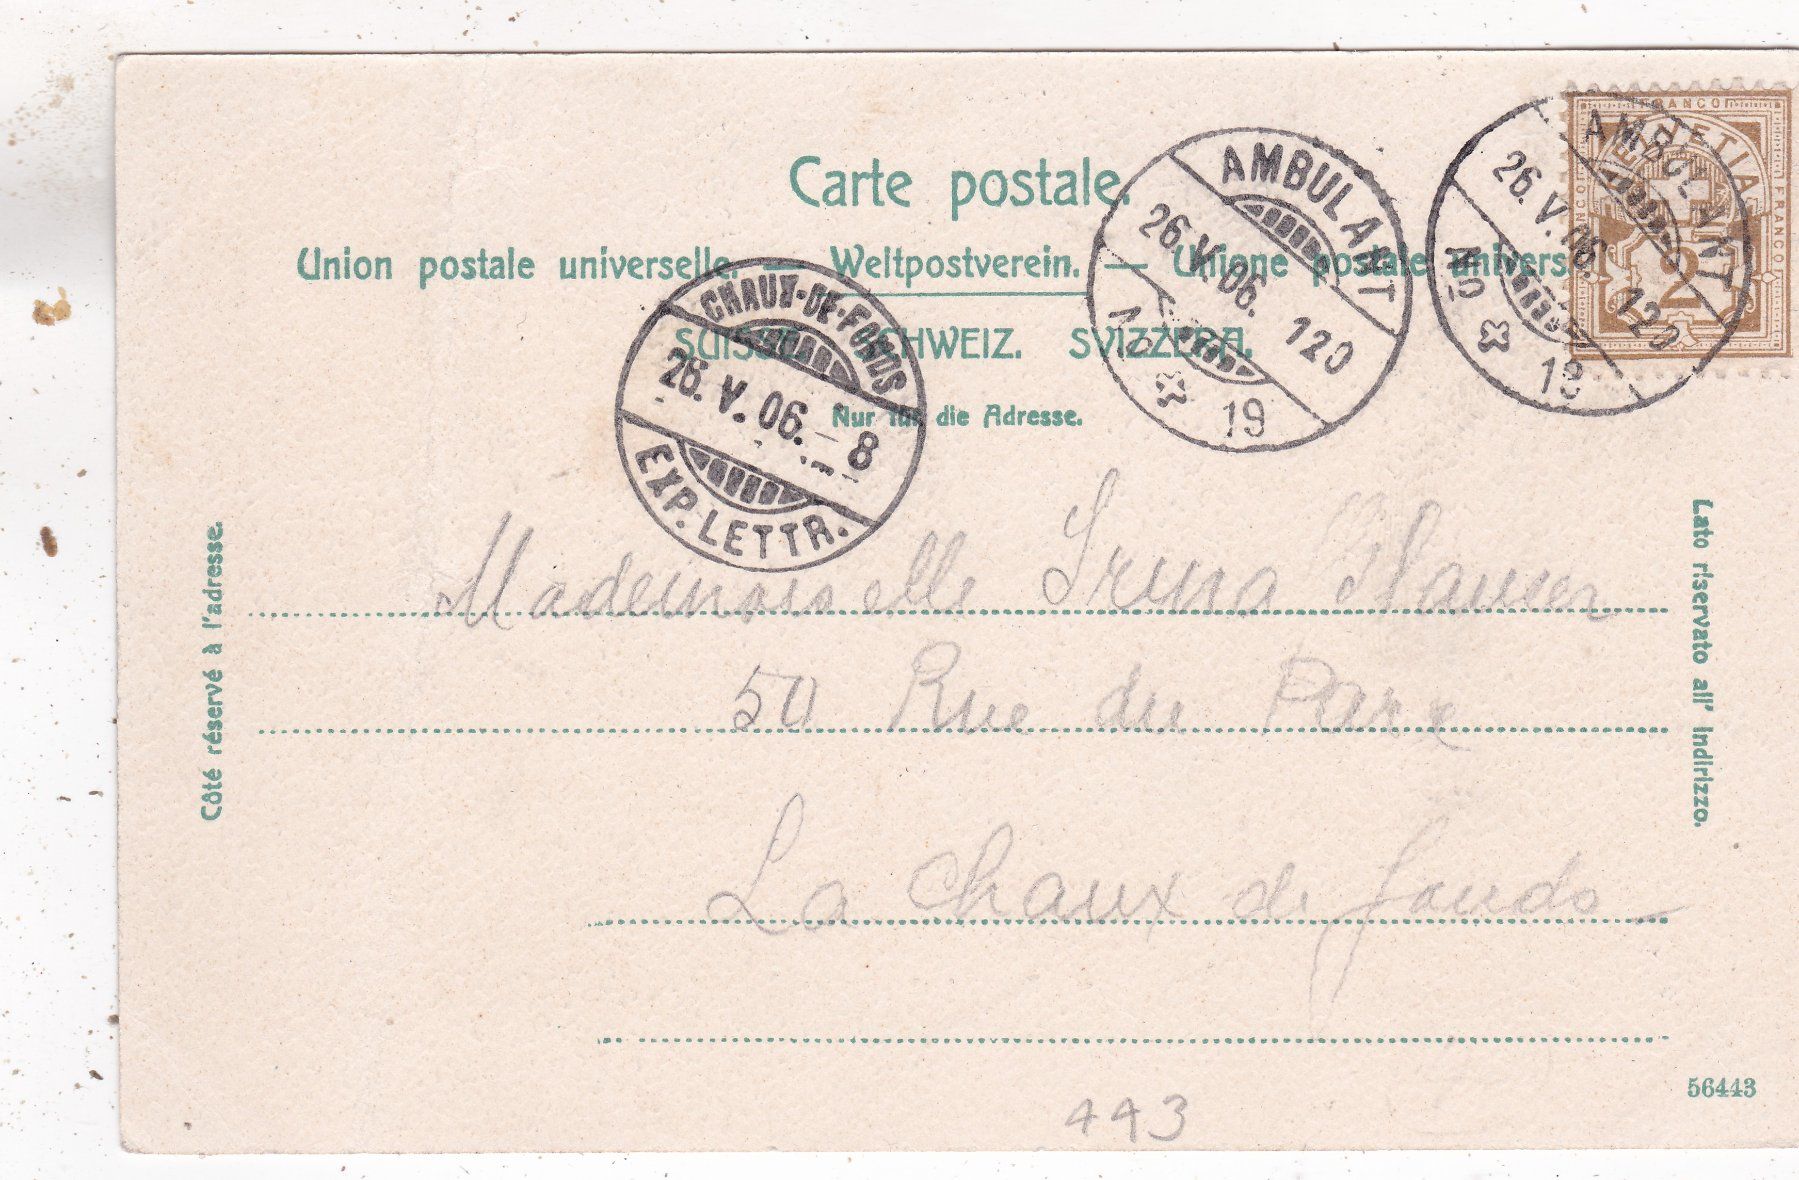 Carte postale.
Union postale universelle. — Weltpostverein. — Unione postale univers
SUISSE. SCHWEIZ. SVIZZERA.
Nur für die Adresse.
Côté réservé à l'adresse.
Lato riservato all' indirizzo.
AMBULANT
26.V.06. 120
No 19
AMBULANT
26.V.06. 120
No 19
FRANCO
HELVETIA
FRANCO
FRANCO
2
CHAUX-DE-FONDS
26.V.06.-8
EXP. LETTR.
Mademoiselle Irma
50 Rue du Parc
La Chaux de fonds
56443
443